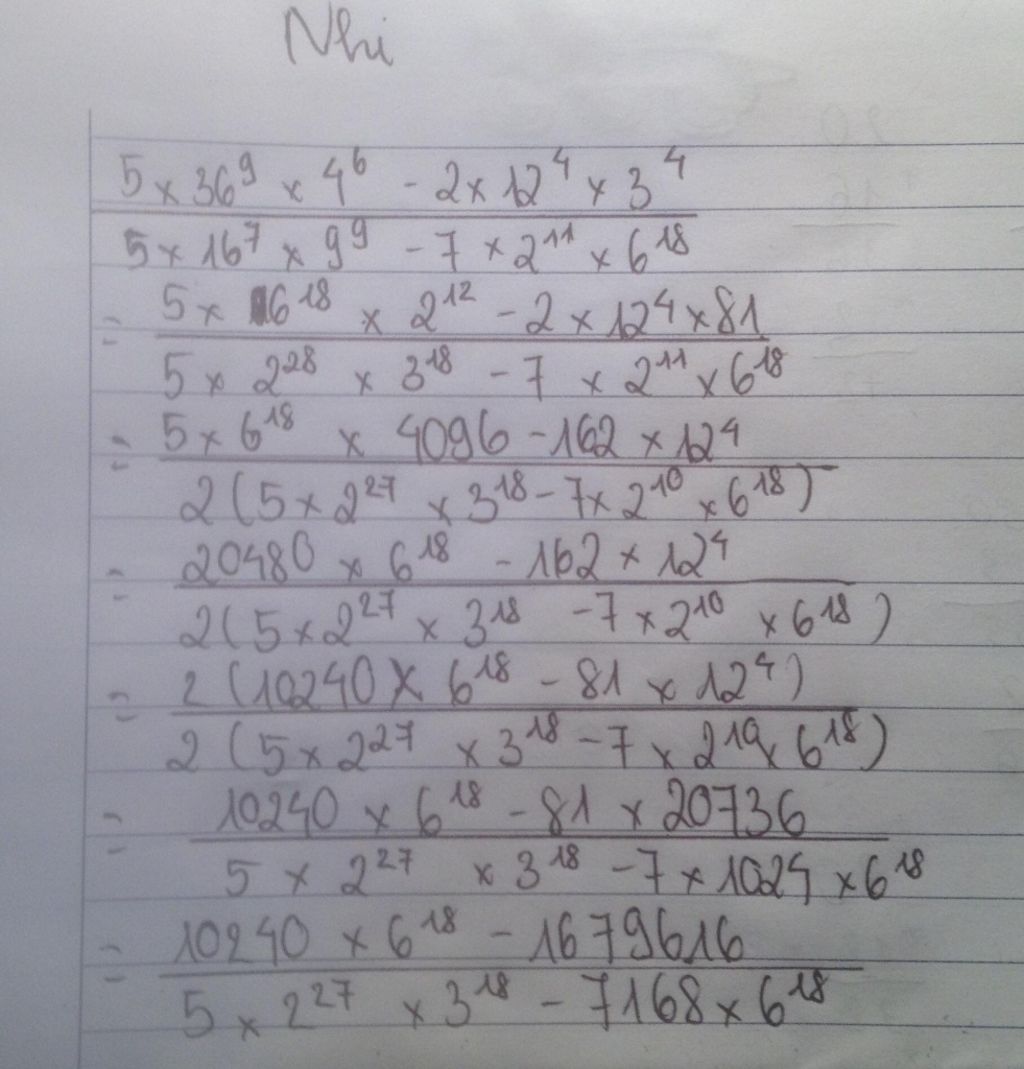 Nhi
5 × 36⁹ × 4⁶ - 2 × 12⁴ × 3⁴
5 × 16⁷ × 9⁹ - 7 × 2¹¹ × 6¹⁸
= 5 × 6¹⁸ × 2¹² - 2 × 12⁴ × 81
5 × 2²⁸ × 3¹⁸ - 7 × 2¹¹ × 6¹⁸
= 5 × 6¹⁸ × 4096 - 162 × 12⁴
2 (5 × 2²⁷ × 3¹⁸ - 7 × 2¹⁰ × 6¹⁸)
= 20480 × 6¹⁸ - 162 × 12⁴
2 (5 × 2²⁷ × 3¹⁸ - 7 × 2¹⁰ × 6¹⁸)
= 2 (10240 × 6¹⁸ - 81 × 12⁴)
2 (5 × 2²⁷ × 3¹⁸ - 7 × 2¹⁰ × 6¹⁸)
= 10240 × 6¹⁸ - 81 × 20736
5 × 2²⁷ × 3¹⁸ - 7 × 1024 × 6¹⁸
= 10240 × 6¹⁸ - 1679616
5 × 2²⁷ × 3¹⁸ - 7168 × 6¹⁸